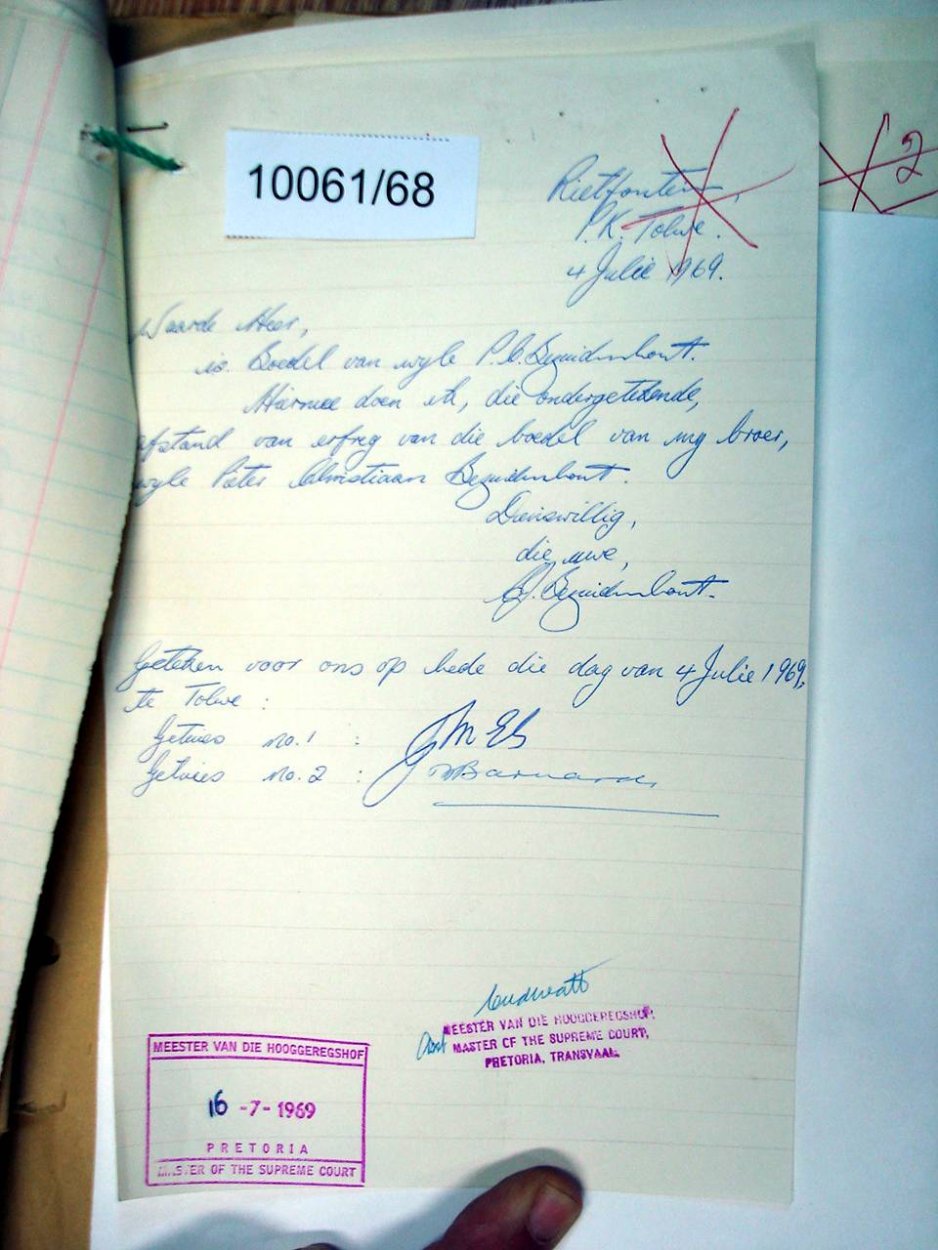 10061/68
2
Rietfontein,
P.K. Tolwe.
4 Julie 1969.
Waarde Heer,
i.s. Boedel van wyle P.C. Bezuidenhout.
Hiermee doen ek, die ondergetekende,
afstand van erfreg van die boedel van my broer,
wyle Pieter Christiaan Bezuidenhout.
Dienswillig,
die uwe,
Bezuidenhout.
Geteken voor ons op hede die dag van 4 Julie 1969,
te Tolwe :
Getuies no. 1 :
Getuies no. 2 : Barnard
MEESTER VAN DIE HOOGGEREGSHOF,
Asst MASTER OF THE SUPREME COURT,
PRETORIA, TRANSVAAL.
MEESTER VAN DIE HOOGGEREGSHOF
16 -7- 1969
PRETORIA
MASTER OF THE SUPREME COURT